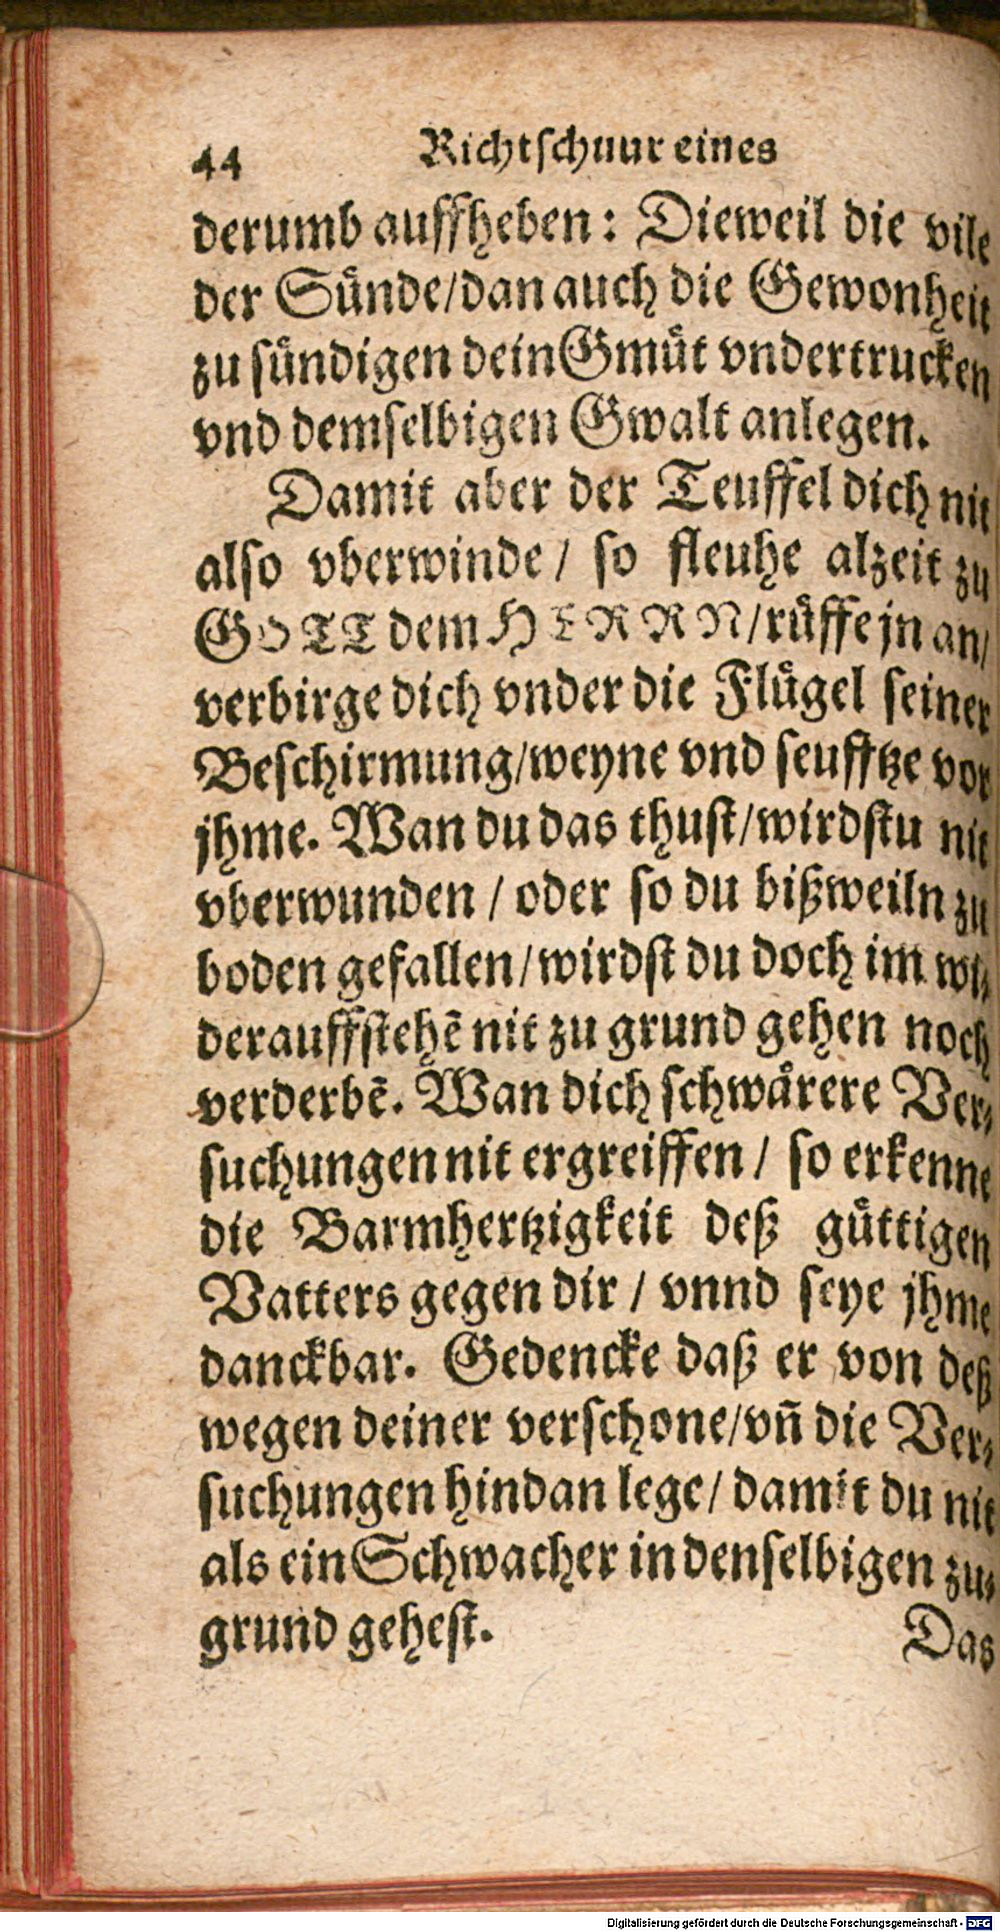 44 Richtschnur eines
derumb auffheben: Dieweil die vile
der Sünde/dan auch die Gewonheit
zu sündigen dein Gmüt vndertrucken
vnd demselbigen Gwalt anlegen.
Damit aber der Teuffel dich nit
also vberwinde / so fleuhe alzeit zu
GOTT dem HERRN/rüffe jn an/
verbirge dich vnder die Flügel seiner
Beschirmung/weyne vnd seufftze vor
jhme. Wan du das thust/wirdstu nit
vberwunden / oder so du bißweiln zu
boden gefallen/wirdst du doch im wi-
derauffstehē nit zu grund gehen noch
verderbē. Wan dich schwärere Ver-
suchungen nit ergreiffen / so erkenne
die Barmhertzigkeit deß güttigen
Vatters gegen dir / vnnd seye jhme
danckbar. Gedencke daß er von deß
wegen deiner verschone/vñ die Ver-
suchungen hindan lege/ damit du nit
als ein Schwacher in denselbigen zu-
grund gehest. Das
Digitalisierung gefördert durch die Deutsche Forschungsgemeinschaft - DFG